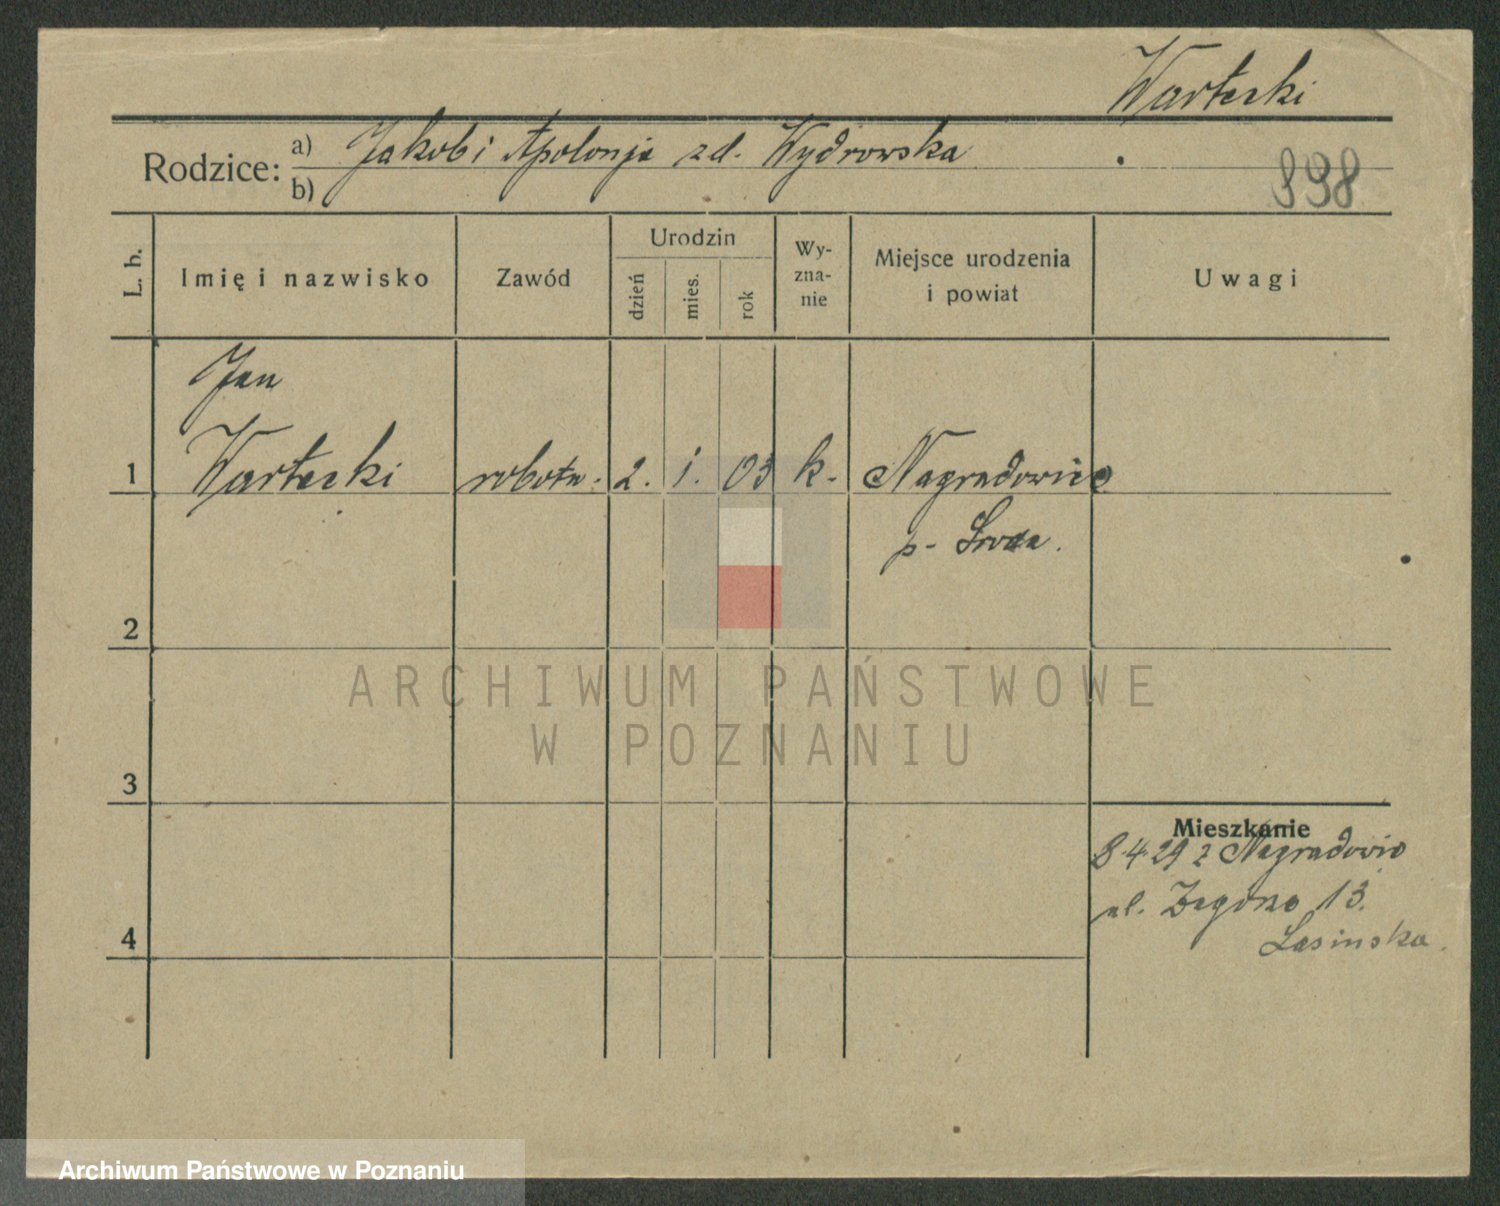 Wartecki
Rodzice: a) Jakob i Apolonja zd. Wydrowska
b)
898
L. b.
Imię i nazwisko
Zawód
Urodzin
dzień
mies.
rok
Wy-
zna-
nie
Miejsce urodzenia
i powiat
Uwagi
Jan
1 Wartecki robotn. 2. 1. 03 k. Nagradowice
p. Środa.
2
ARCHIWUM PAŃSTWOWE
W POZNANIU
3
Mieszkanie
8.4.29 z Nagradowic
ul. Zagórze 13.
4
Lasinska.
Archiwum Państwowe w Poznaniu